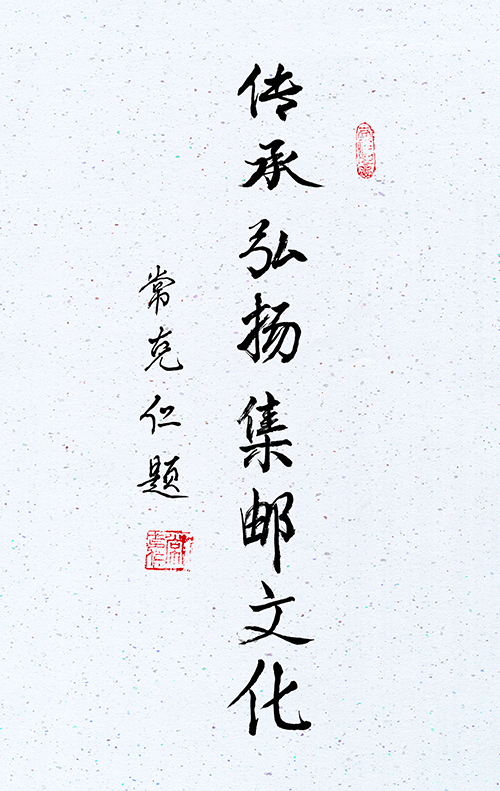 传承弘扬集邮文化
常克仁题